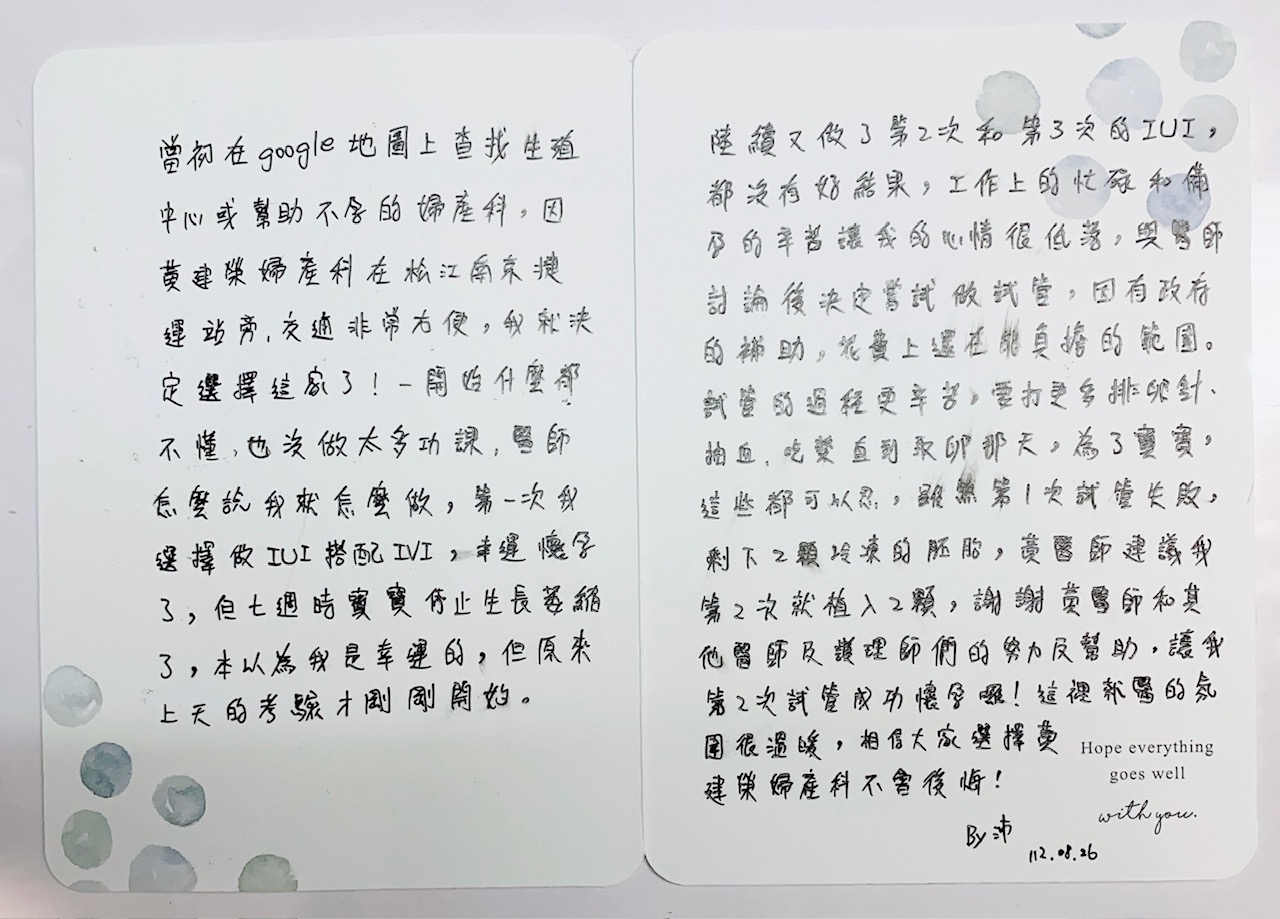 當初在google地圖上查找生殖
中心或幫助不孕的婦產科,因
黃建榮婦產科在松江南京捷
運站旁,交通非常方便,我就決
定選擇這家了!一開始什麼都
不懂,也沒做太多功課,醫師
怎麼說我就怎麼做,第一次我
選擇做IUI搭配IVI,幸運懷孕
了,但七週時寶寶停止生長萎縮
了,本以為我是幸運的,但原來
上天的考驗才剛剛開始。
陸續又做了第2次和第3次的IUI,
都沒有好結果,工作上的忙碌和備
孕的辛苦讓我的心情很低落,與醫師
討論後決定嘗試做試管,因有政府
的補助,花費上還在能負擔的範圍。
試管的過程更辛苦,要打更多排卵針、
抽血、吃藥直到取卵那天,為了寶寶,
這些都可以忍,雖然第1次試管失敗,
剩下2顆冷凍的胚胎,黃醫師建議我
第2次就植入2顆,謝謝黃醫師和其
他醫師及護理師們的努力及幫助,讓我
第2次試管成功懷孕囉!這裡就醫的氛
圍很溫暖,相信大家選擇黃
建榮婦產科不會後悔!
Hope everything
goes well
with you.
By 沛
112.08.26